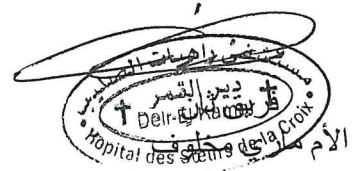 مستشفى راهبات الصليب
دير القمر
Deir-El-Kamar
Hôpital des Sœurs de la Croix
الأم ماري مخلوف